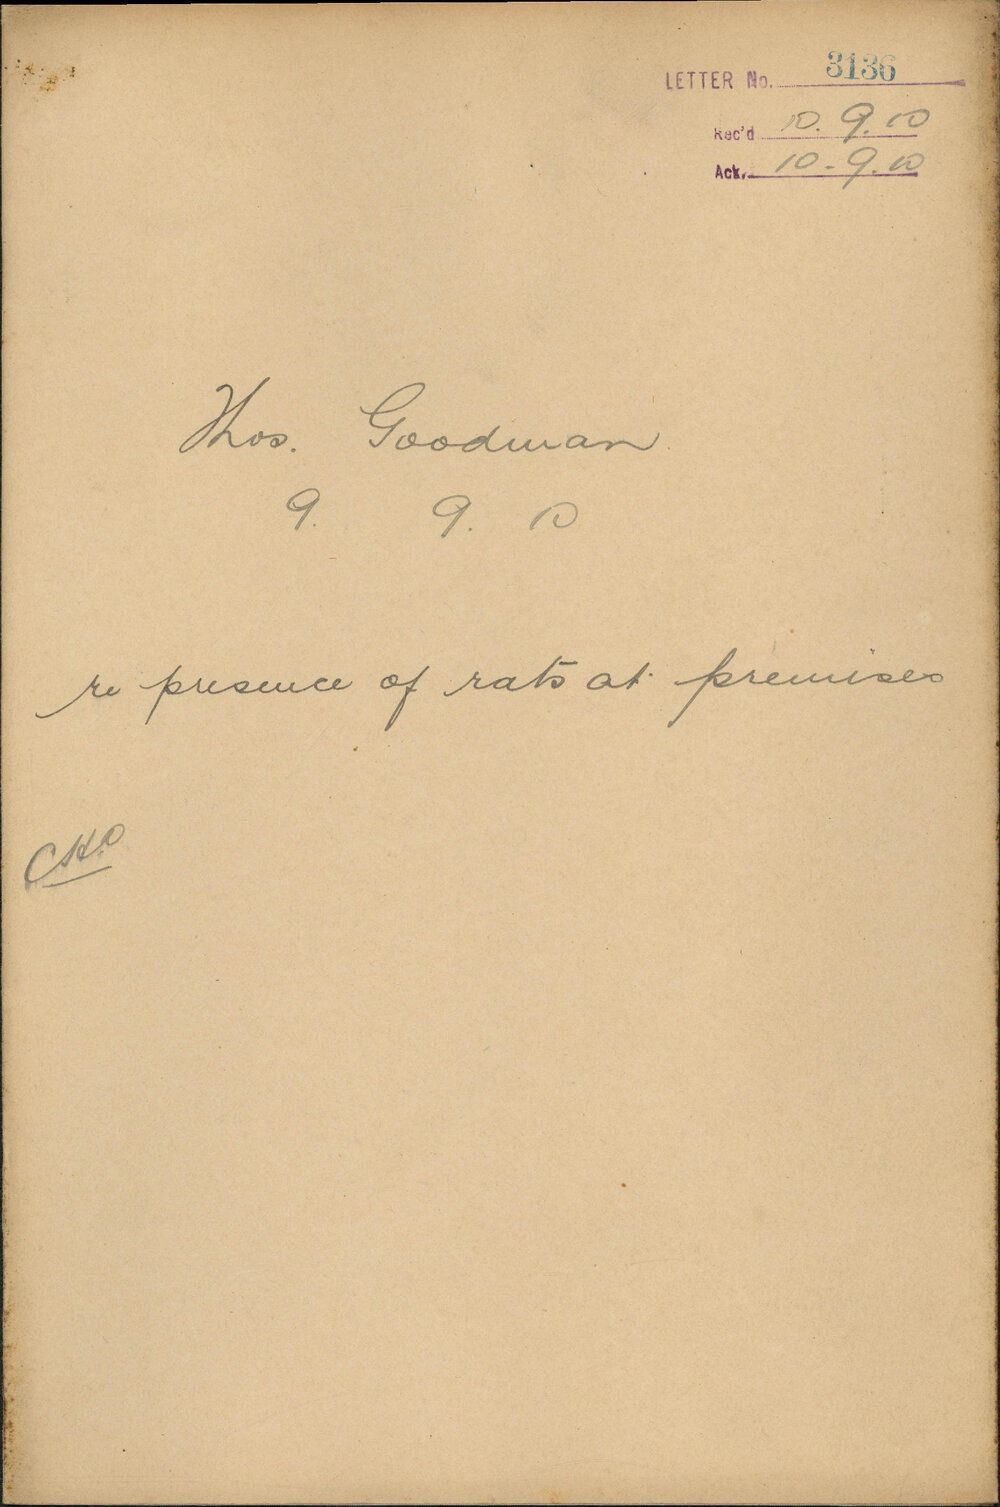 LETTER No. 3136
Rec'd 10. 9. 10
Ack. 10-9.10
Thos. Goodman
9. 9. 10
re presence of rats at premises